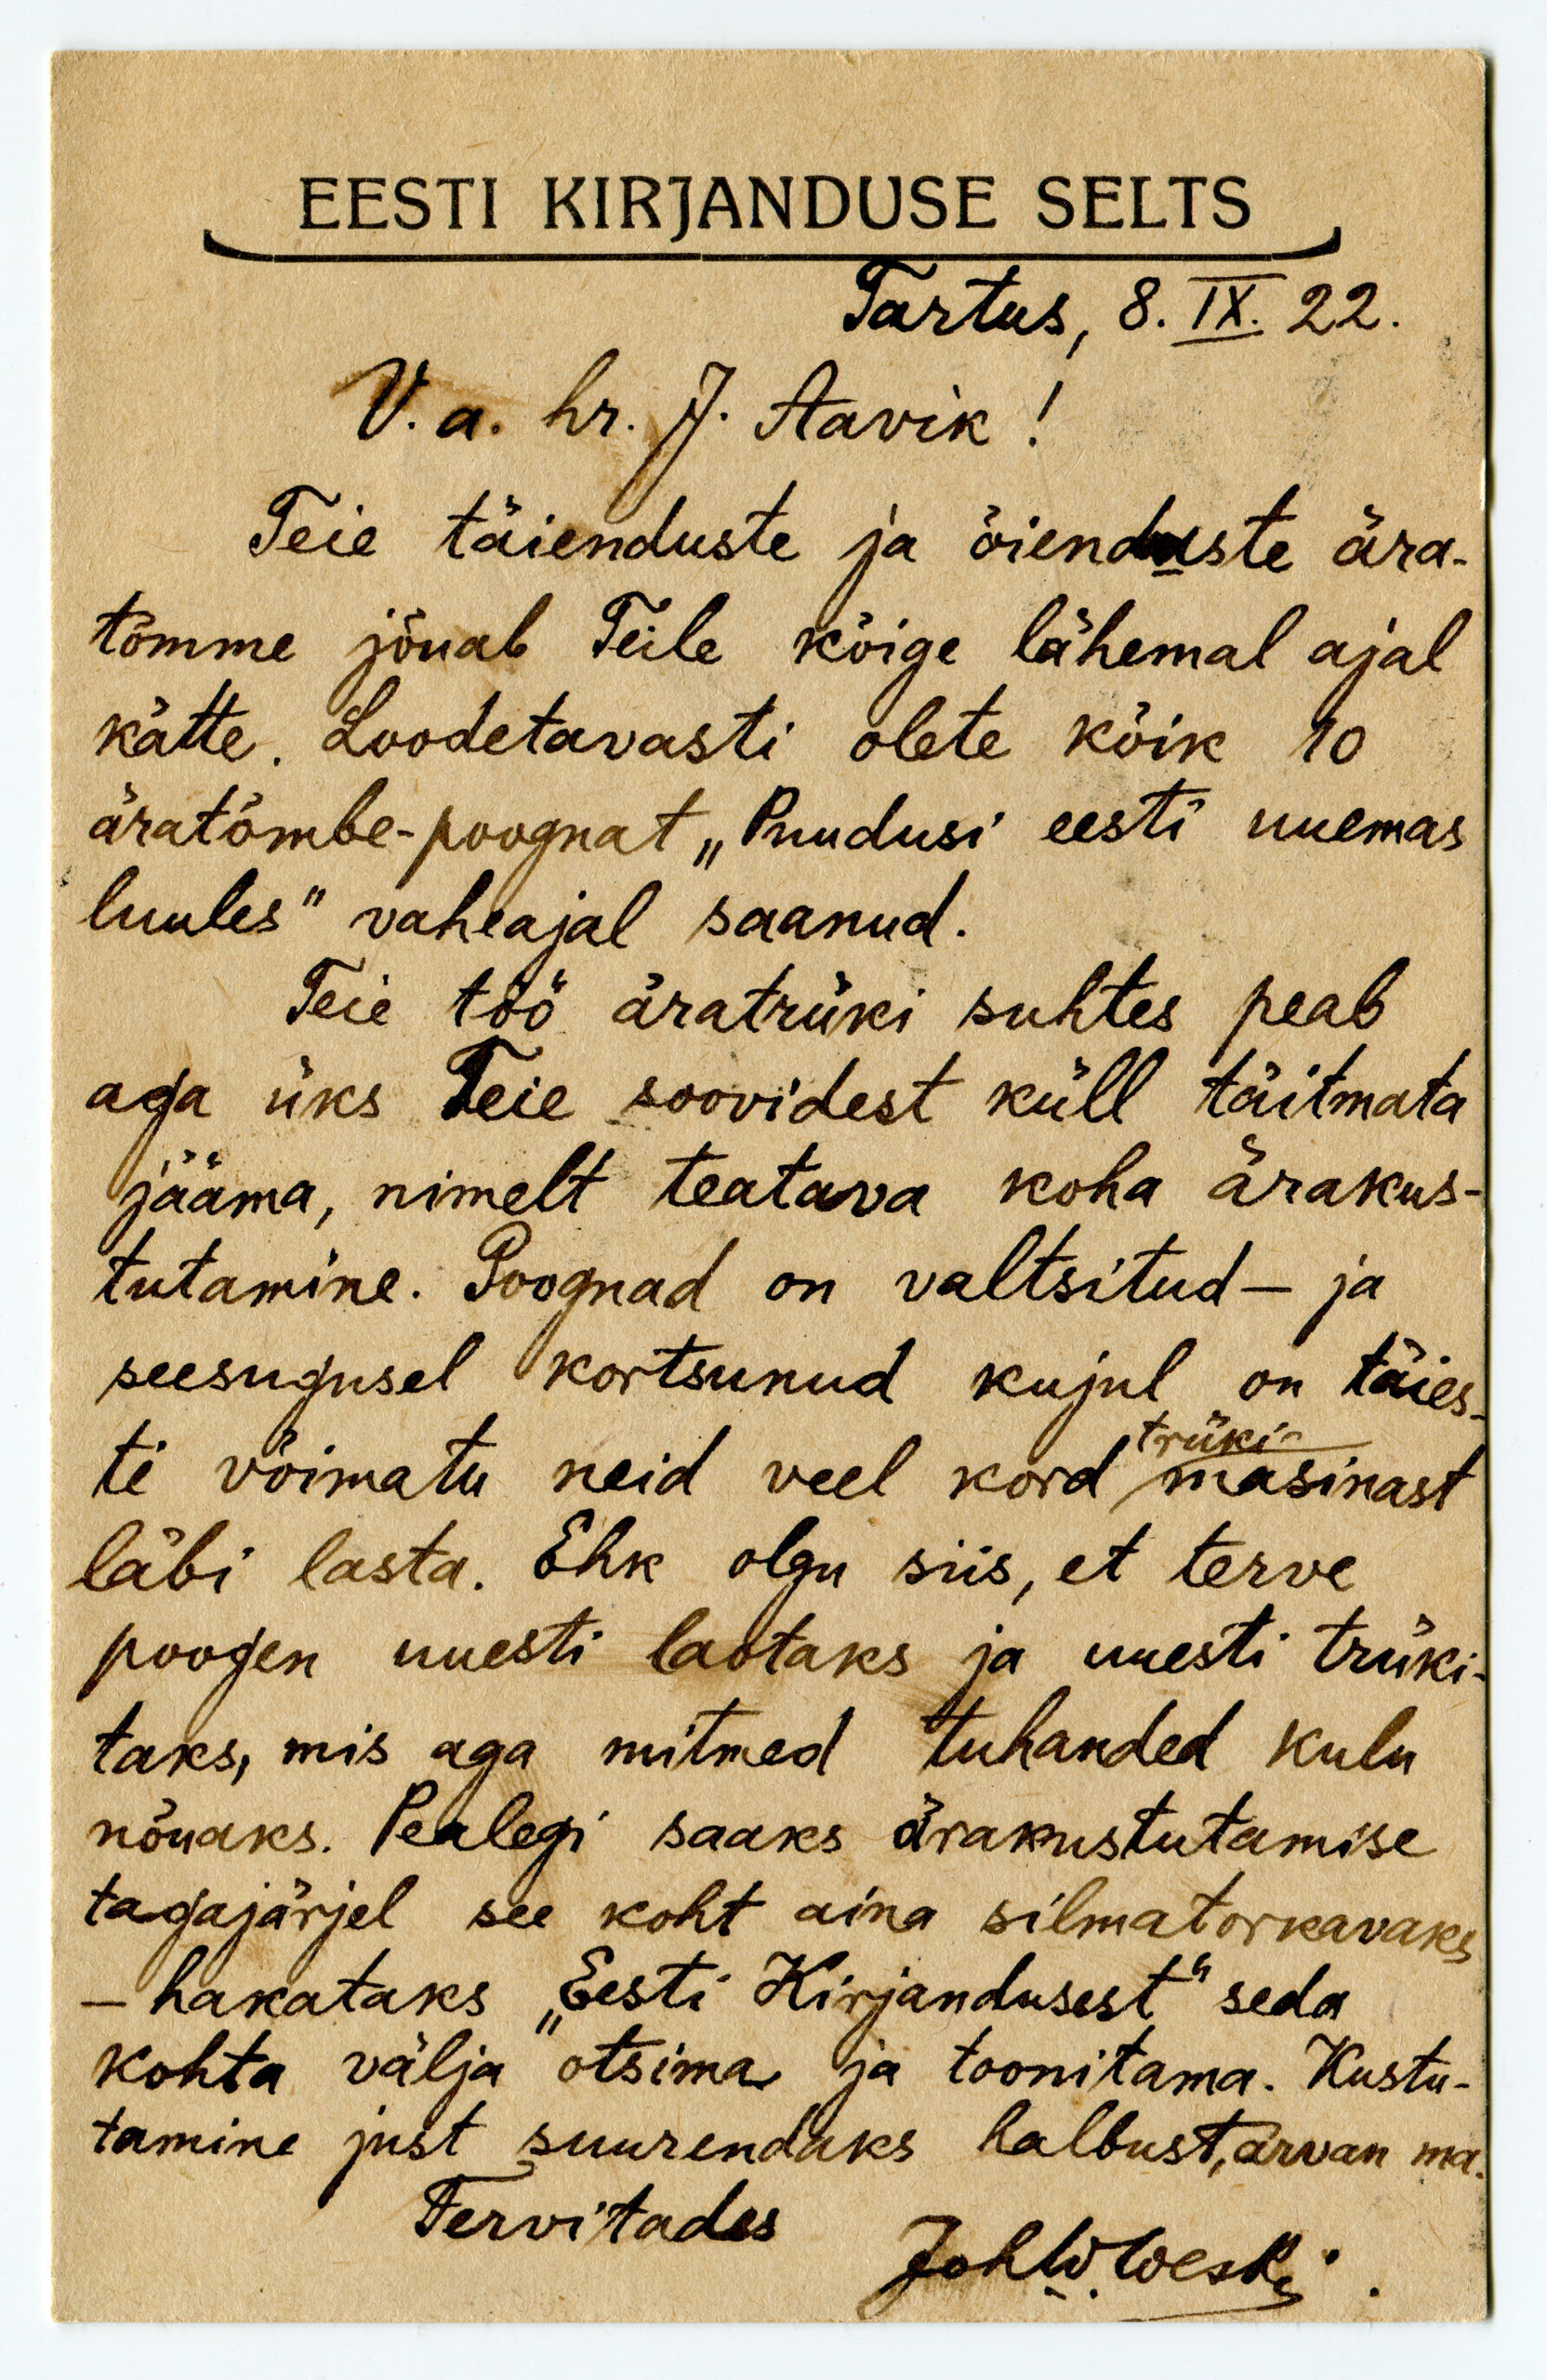 EESTI KIRJANDUSE SELTS
Tartus, 8. IX. 22.
V. a. hr. J. Aavik!
Teie täienduste ja õienduste ära-
tõmme jõuab Teile kõige lähemal ajal
kätte. Loodetavasti olete kõik 10
äratõmbe-poognat „Puudusi eesti uuemas
luules" vaheajal saanud.
Teie töö äratrüki suhtes peab
aga üks Teie soovidest küll täitmata
jääma, nimelt teatava koha ärakus-
tutamine. Poognad on valtsitud – ja
seesugusel kortsunud kujul on täies-
ti võimatu neid veel kord trüki-
masinast
läbi lasta. Ehk olgu siis, et terve
poogen uuesti laotaks ja uuesti trüki-
taks, mis aga mitmed tuhanded kulu
nõuaks. Pealegi saaks ärakustutamise
tagajärjel see koht aina silmatorkavaks
– hakataks „Eesti Kirjandusest" seda
kohta välja otsima ja toonitama. Kustu-
tamine just suurendaks halbust, arvan ma.
Tervitades
Joh W. Weski.